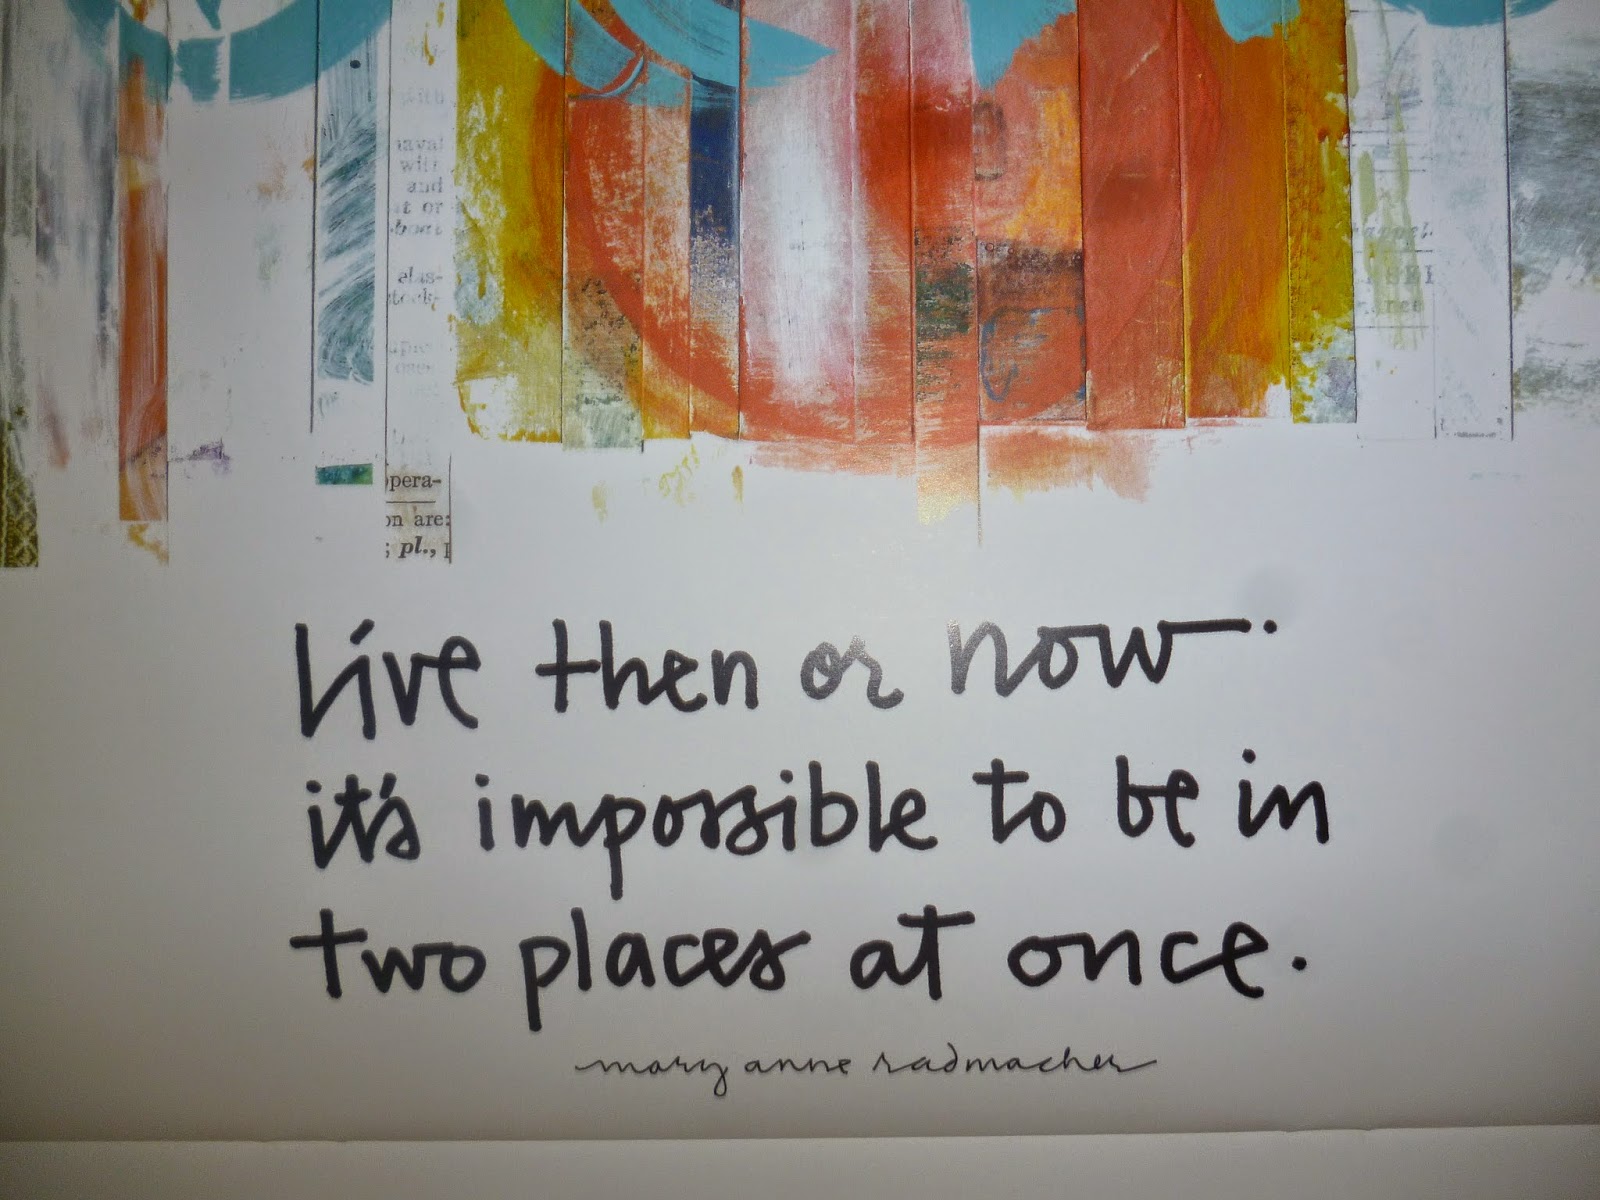 with
naval
with
and
at or
elas-
stock-
opera-
on are:
; pl.,
Live then or now.
it's impossible to be in
two places at once.
mary anne radmacher